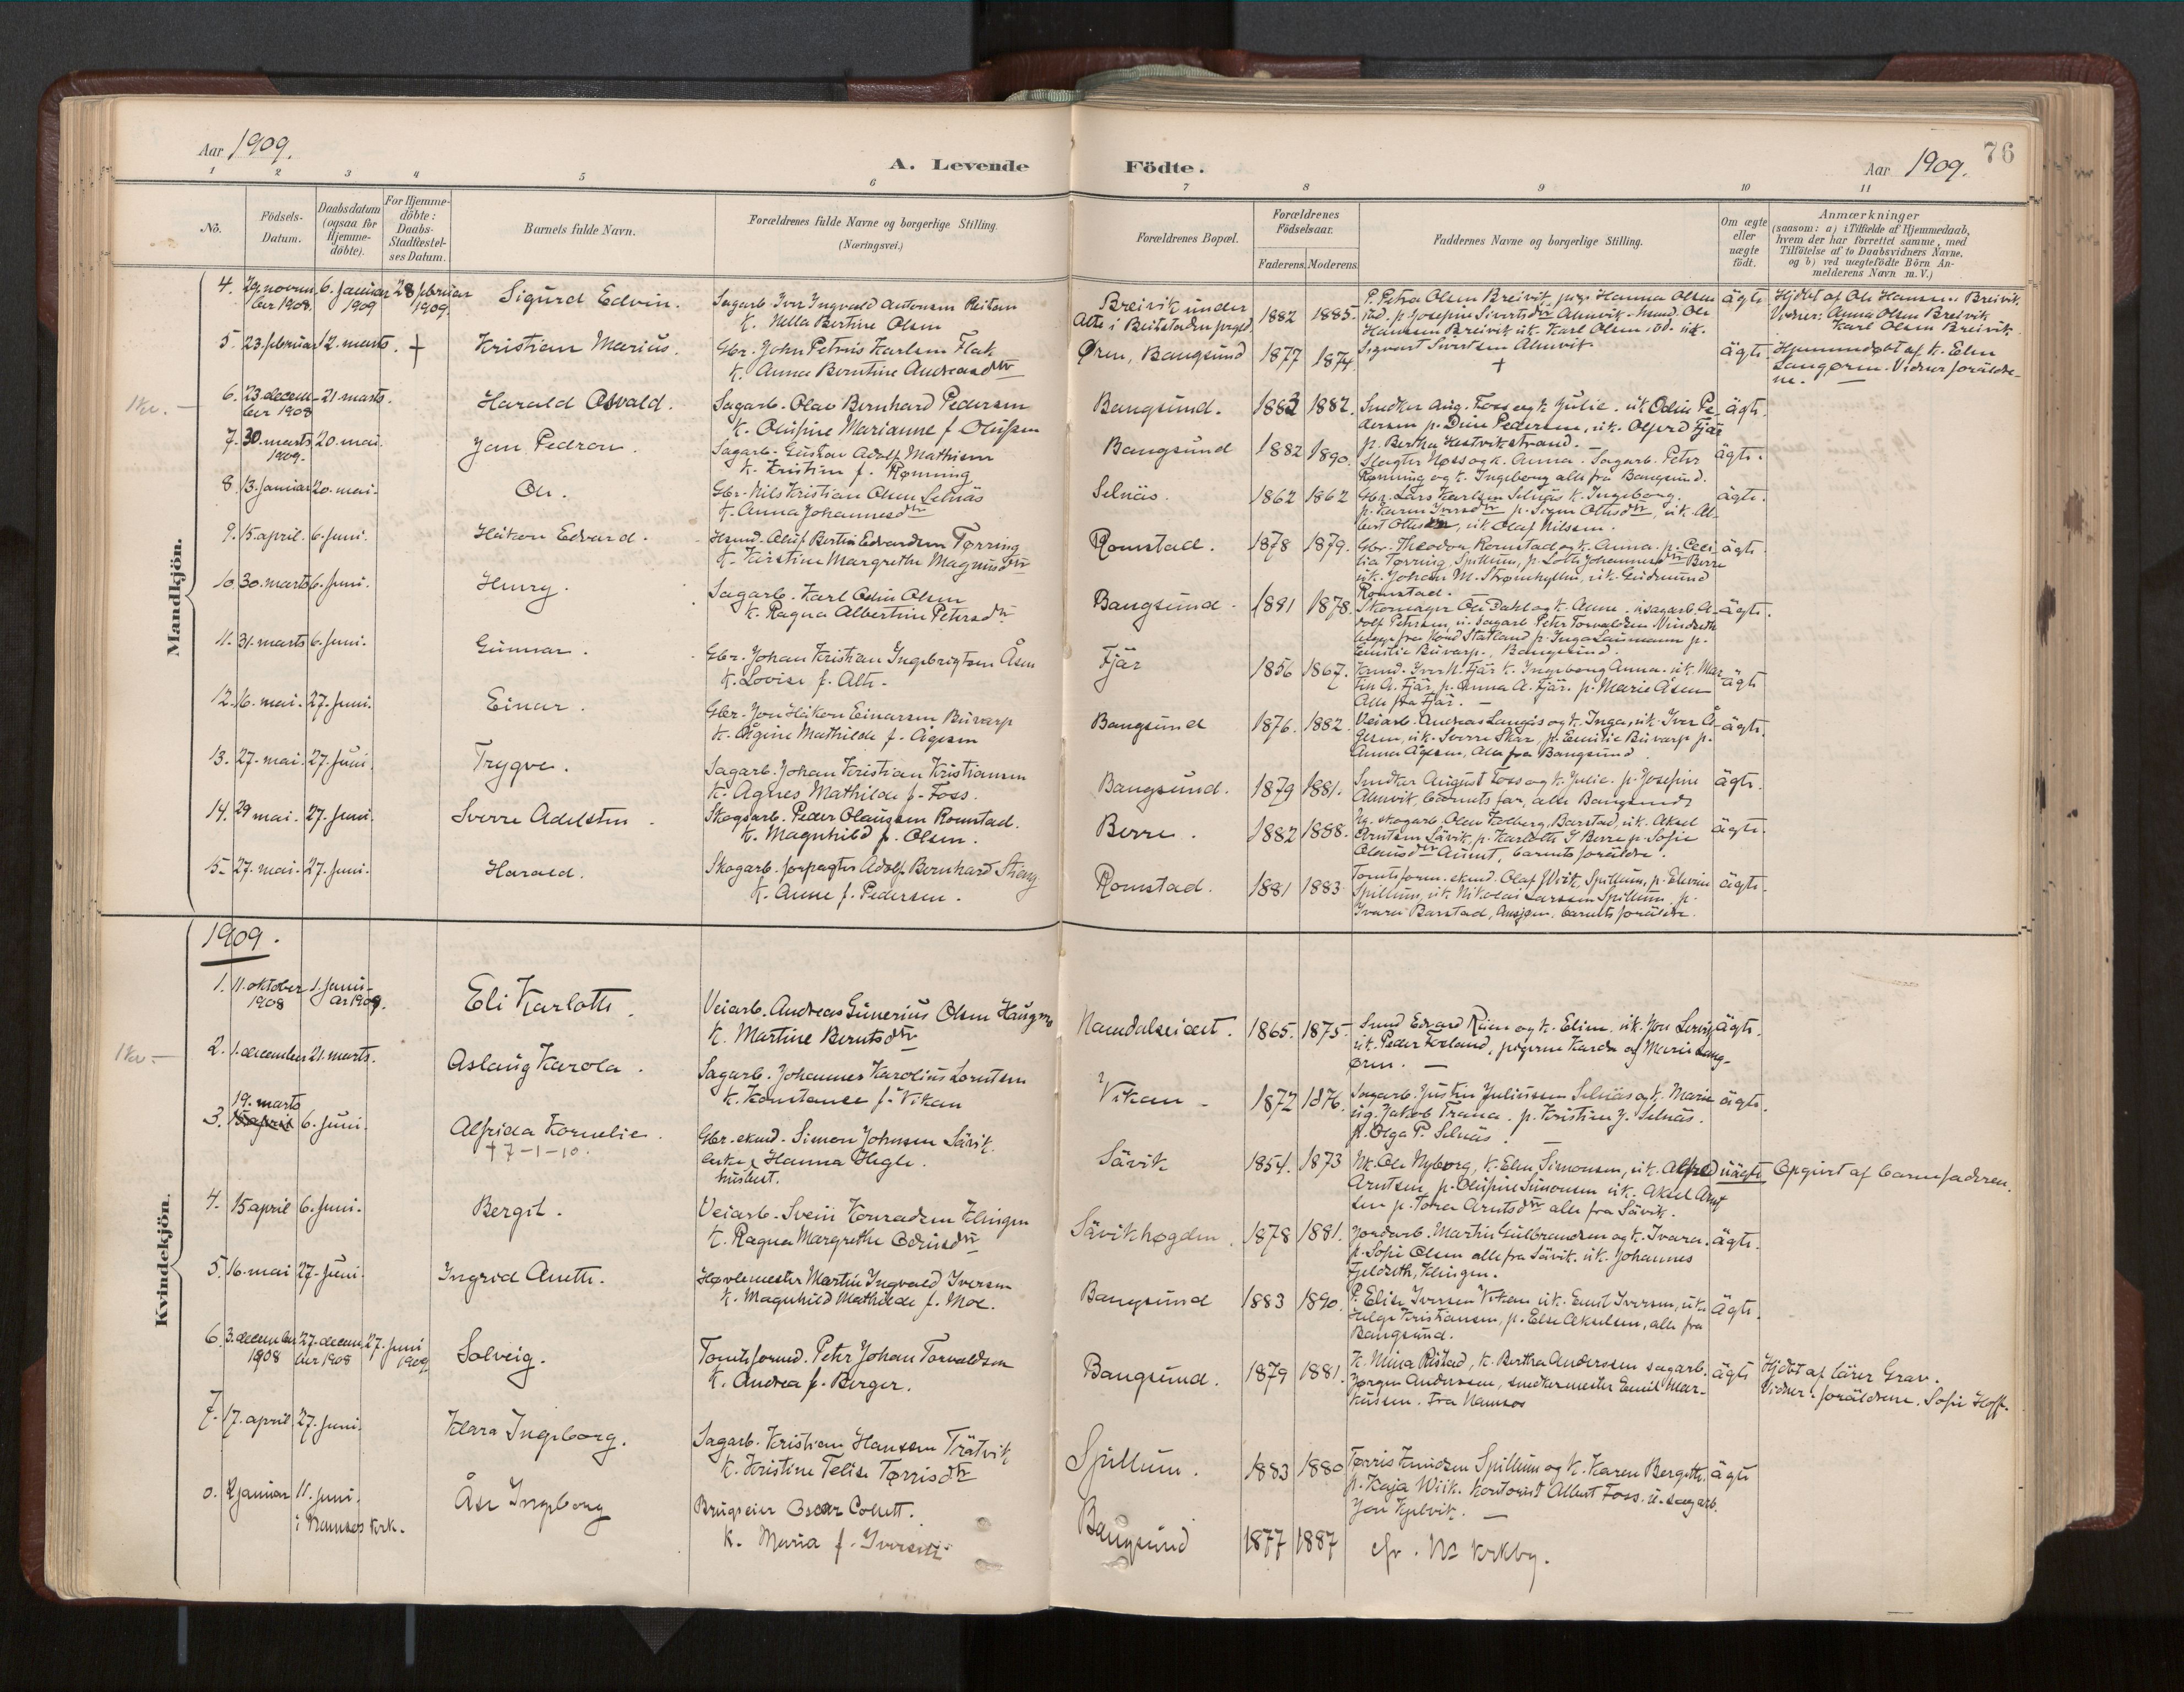 Aar 1909.
A. Levende Födte.
Aar 1909.
76
1 2 3 4 5 6 7 8 9 10 11
No.
Födsels-
Datum.
Daabsdatum
(ogsaa for
Hjemme-
döbte).
For Hjemme-
döbte:
Daabs-
Stadfæstel-
ses Datum.
Barnets fulde Navn.
Forældrenes fulde Navne og borgerlige Stilling.
(Næringsvei.)
Forældrenes Bopæl.
Forældrenes
Födselsaar.
Faderens. Moderens.
Faddernes Navne og borgerlige Stilling.
Om ægte
eller
uægte
födt.
Anmærkninger
(saasom: a) i Tilfælde af Hjemmedaab,
hvem der har forrettet samme, med
Tilföielse af to Daabsvidners Navne,
og b) ved uægtefödte Börn An-
melderens Navn m. V.)
Mandkjön.
4. 29 novem
ber 1908. 6. januar
1909 28 februar
1909. Sigurd Edvin. Sagarb. Iver Ingvald Antonsen
K. Nella Bertine Olsen
Breivik under
1882 1885. P. Petra Olsen Breivik, Hanna Olsen
Hanssen Breivik uk. Karl Olsen
Sigvart Sivertsen Almvik
ägte. Hjdøbt af Ole Hanssen Breivik.
Vidner: Anna Olsen Breivik
Karl Olsen Breivik.
5. 23. februar 12. marts. + Kristian Marius. Gbr. John Petrus Karlsen Flak
K. Anna Berntine Andreasdtr
Øren, Bangsund 1877 1874. + ägte. Hjemmedøbt af K. Elen
Langøren. Vidner foräldre-
ne. —
1 kv. —
6. 23 decem-
ber 1908 21. marts. Harald Osvald. Sagarb. Olav Bernhard Pedersen
K. Olufine Marianne f. Olufsen
Bangsund. 1883 1882. Snedker Aug. Foss og K. Julie. uk Odin Pe-
dersen p. Dina Pedersen, uk. Olferd Fjär
p. Bertha Hestvikstrand. —
ägte.
7. 30. marts
1909. 20. mai. Jon Pedron. Sagarb. Gustav Adolf Mathisen
K. Kristine f. Rønning
Bangsund 1882 1890. Slagter Høss og K. Anna. Sagarb. Peter
Rønning og K. Ingeborg alle fra Bangsund.
ägte.
8. 13. januar 20. mai. Ole. Gbr. Nils Kristian Olsen Selnäs
K. Anna Johannesdtr
Selnäs. 1862 1862 Gbr. Lars Karlsen Selnäs K. Ingeborg.
p. Karen Iversdtr p. Signe Ottesdtr, uk. Al-
bert Ottesen, uk Olaf Nilssen.
ägte.
9. 15. april. 6. juni. Håkon Edvard. Husmd. Oluf Bertin Edvardsen Tørring
K. Kirstine Margrethe Magnusdtr
Romstad. 1878 1879. Gbr. Theodor Romstad og K. Anna. p. Ceci
lia Tørring, Spillum, p. Lotte Johannesdtr Berre
uk. Johan M. Strømhylla, uk. Gudmund
Romstad.
ägte
10. 30. marts 6. juni. Henry. Sagarb. Karl Odin Olsen
K. Ragna Albertine Petersdtr
Bangsund. 1881 1878. Skomager Ole Dahl og K. Anne. sagarb. A-
dolf Petersen, sagarb Peter Torvaldsen Vindseth
Statland p. Inga Laumann p.
Emilie Buvarp, Bangsund.
ägte.
11. 31. marts 6. juni. Gunnar. Gbr. Johan Kristian Ingebrigtsen Åsen
K. Lovise f. Alte.
Fjär 1856 1867. Iver N. Fjär K. Ingeborg Anna. uk. Mar-
tin A. Fjär, p. Anna A. Fjär. p. Marie Åsen
Alle fra Fjär. —
ägte
12. 16. mai. 27. juni. Einar. Gbr. Jon Håkon Einarsen Buvarp
K. Ågine Mathilde f. Ågesen
Bangsund 1876. 1882. Veiarb. Andreas Langås og K. Inga, uk. Iver Å-
gesen, uk. Sverre Skar, p. Emilie Buvarp p.
Anna Ågesen, Alle fra Bangsund.
ägte.
13. 27. mai. 27. juni. Trygve. Sagarb. Johan Kristian Kristiansen
K. Agnes Mathilde f. Foss.
Bangsund. 1879 1881. Snedker August Foss og K. Julie. p. Josefine
Almvik, barnets far, alle Bangsund
ägte.
14. 29 mai. 27. juni. Sverre Adelsten. Skogsarb. Peder Olausen Romstad.
K. Magnhild f. Olsen.
Berre. 1882 1888. skogarb. Oluv Kolberg, Barstad, uk. Aksel
Arntsen Sävik, p. Karlotte I Berre p. Sofie
Olausdtr Aunet, barnets foräldre.
ägte.
15. 27. mai. 27. juni. Harald. Skogarb. forpagter Adolf Bernhard
K. Anne f. Pedersen.
Romstad. 1881 1883 Tomteform. ekmd. Olaf Wiik, Spillum, p. Elevine
Spillum, uk Nikolai Larssen Spillum. p.
Ivara Barstad, barnets foräldre.
ägte.
Kvindekjön.
1909.
1. 11. oktober
1908 1. januar 1909. Eli Karlotte. Veiarb. Andreas Gunerius Olsen Haugmo
K. Martine Berntsdtr
Namdalseidet. 1865. 1875. Smed Edvard og K. Eline. uk. Jon
uk. Peder, pigerne Karda og Marie Lang-
øren. —
ägte.
1 kv —
2. 1. december 21. marts. Aslaug Karola. Sagarb. Johannes Karolius Lorntsen
K. Konstance f. Vikan
Vikan — 1872 1876. Sagarb. Justin Juliussen Selnäs og K. Marie
ug. Jakob Trana. p. Kristine J. Selnäs.
p. Olga P. Selnäs.
ägte.
3. 19. marts
15 april 6. juni. Alfrida Kornelie.
† 7-1-10.
Gbr. ekmd. Simon Johnsen Sävik.
enke Hanna Hegle.
husbest.
Sävik 1854. 1873 Nk. Ole Nyborg, K. Elen Simonsen, uk. Alfred
Arntsen, p. Olufine Simonsen uk. Aksel Arnt
sen p. Tora Arntsdtr alle fra Sävik.
uägte Opgivet af barnefaderen.
4. 15 april 6. juni. Bergit. Veiarb. Svein Konradsen Klingen
K. Ragna Margrethe Edvisdtr
Sävikhøgden. 1878 1881. Jordarb. Martin Gulbrandsen og K. Ivara.
p. Sofie Olsen alle fra Sävik. uk. Johannes
Fjeldseth, Klingen.
ägte.
5. 16. mai 27. juni. Ingrid Anette. Høvlemester Martin Ingvald Iversen
K. Magnhild Mathilde f. Moe.
Bangsund 1883 1890. P. Elise Iversen Vikan uk. Emil Iversen, uk
Helge Kristiansen, p. Else Akselsen, alle fra
Bangsund.
ägte.
6. 3. december
1908 27. decem
ber 1908 27. juni
1909 Solveig. Tomteformd. Peter Johan Torvaldsen
K. Andrea f. Berger.
Bangsund. 1879 1881. K. Mina Ristad, K. Berthea Anderssen sagarb.
Jørgen Anderssen, snedkermester Emil Mar-
kussen. Fra Namsos
ägte Hjdøbt af lärer Grav.
Vidner: foräldrene. Sofie Hoff.
7. 17. april 27. juni. Klara Ingeborg. Sagarb. Kristian Hanssen Trätvik
K. Kristine Telise Tørrisdtr
Spillum. 1883 1880 Tørris Knudsen Spillum og K. Karen Bergitte.
p. Kaja Wiik. Kontorist Albert Foss. u. sagarb.
Jon Kjelvik. —
ägte
0. 2 januar 11. juni.
i Namsos kirk. Åse Ingeborg Brugseier Oscar Collett.
K. Maria f. Iversen
Bangsund 1877 1887 cfr. Ns kirkbg.